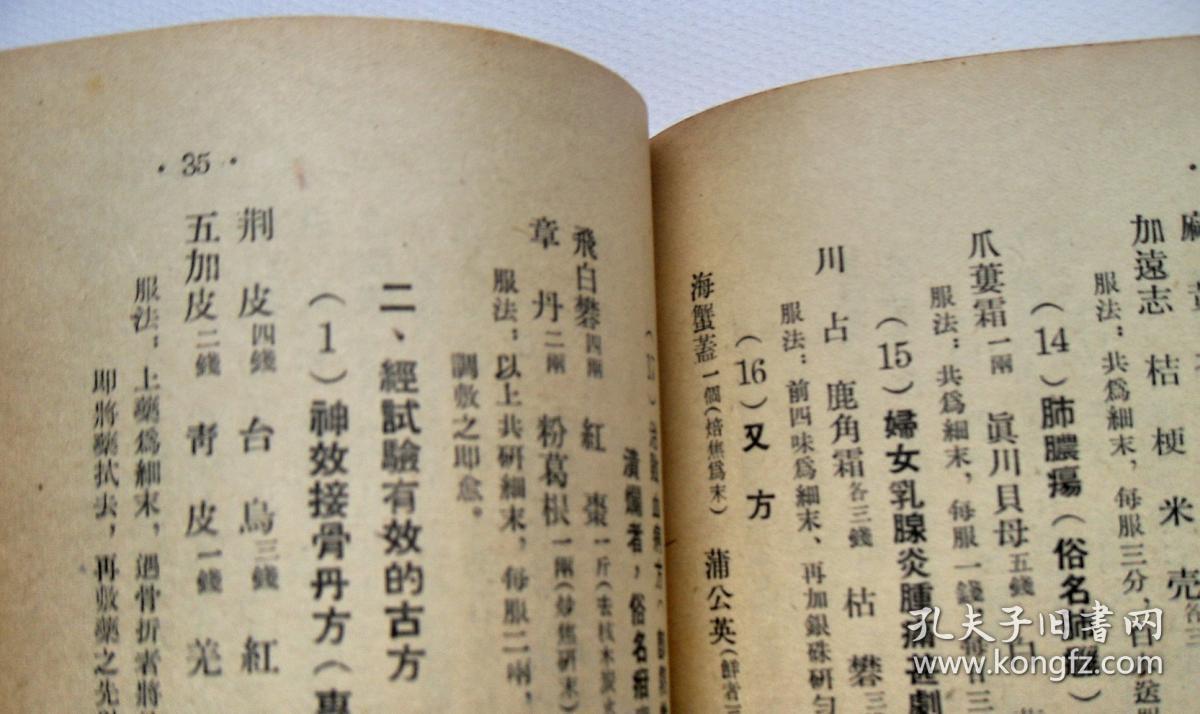 加遠志 桔梗 米壳
服法：共爲細末，每服三分，白
(14)肺膿瘍(俗名肺
爪蔞霜一兩 眞川貝母五錢 白
服法：共爲細末，每服一錢，每日三
(15)婦女乳腺炎腫痛甚劇
川占 鹿角霜各三錢 枯礬三
服法：前四味爲細末、再加銀硃研勻
(16)又方
海蟹蓋一個(焙焦爲末) 蒲公英(鮮者
潰爛者，俗名疳
飛白礬四兩 紅棗一斤(去核木炭火
章丹二兩 粉葛根一兩(炒焦研末)
服法；以上共研細末，每服二
調敷之即愈。
二、經試驗有效的古方
(1)神效接骨丹方(專
荆皮四錢 台烏三錢 紅
五加皮二錢 靑皮一錢 羌
服法，上藥爲細末，遇骨折者將
即將藥拭去，再敷藥之先
·35·
孔夫子旧書网
www.kongfz.com